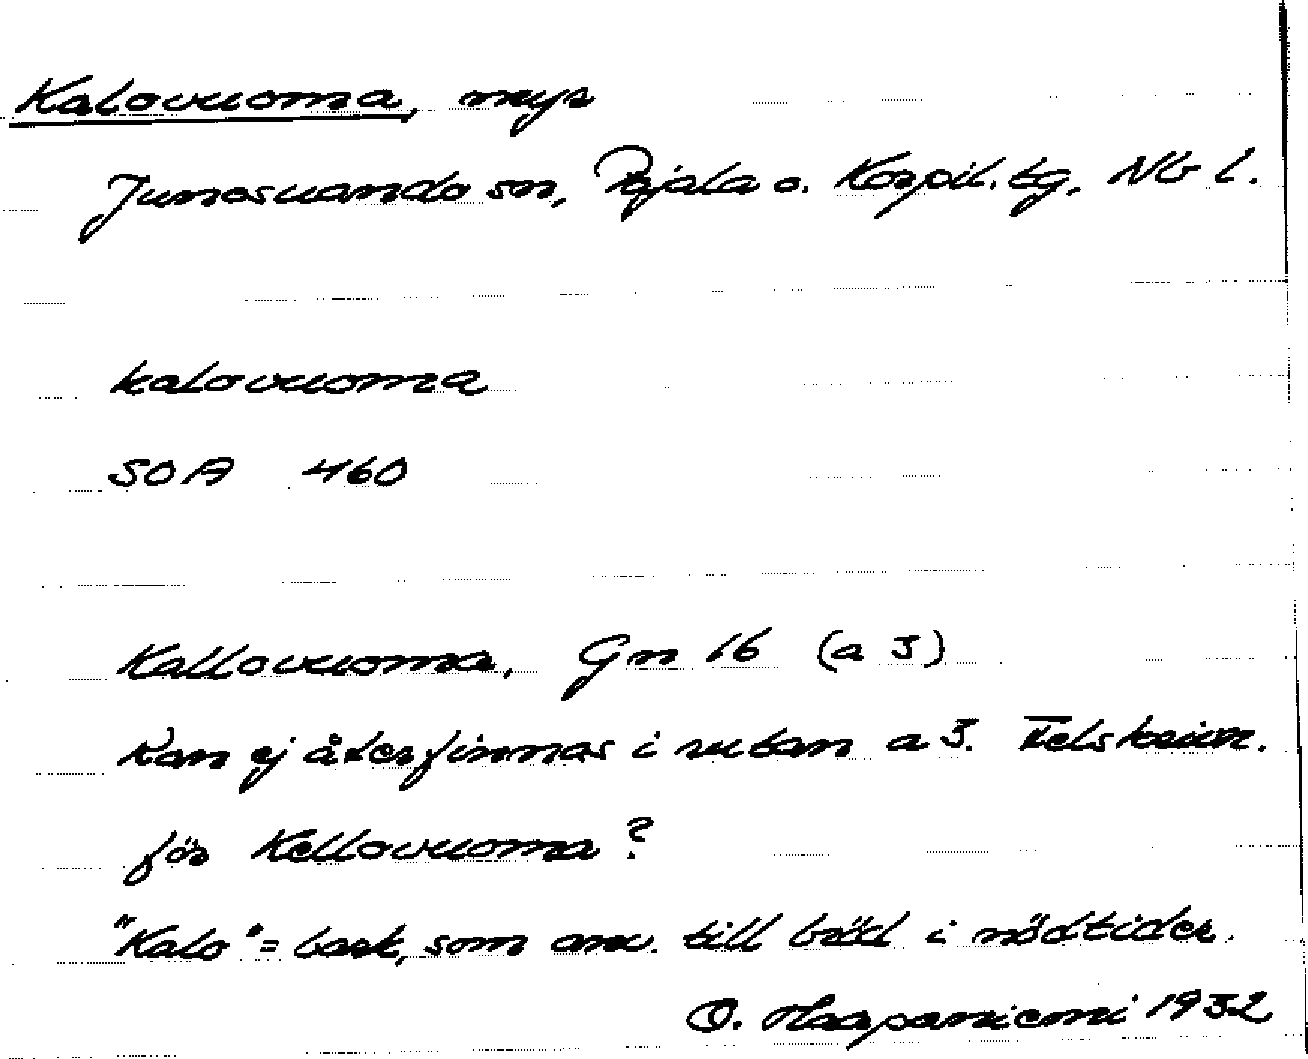 Kalovuoma, myr
Junosuando sn, Pajala o. Korpil. tg, Nb l.
kalovuoma
SOA 460
Kallovuoma, Gn 16 (a 3)
Kan ej återfinnas i rutan a 3. Felskrivn.
för Kellovuoma?
"Kalo" = bark, som anv. till bröd i nödtider.
O. Haapaniemi 1932